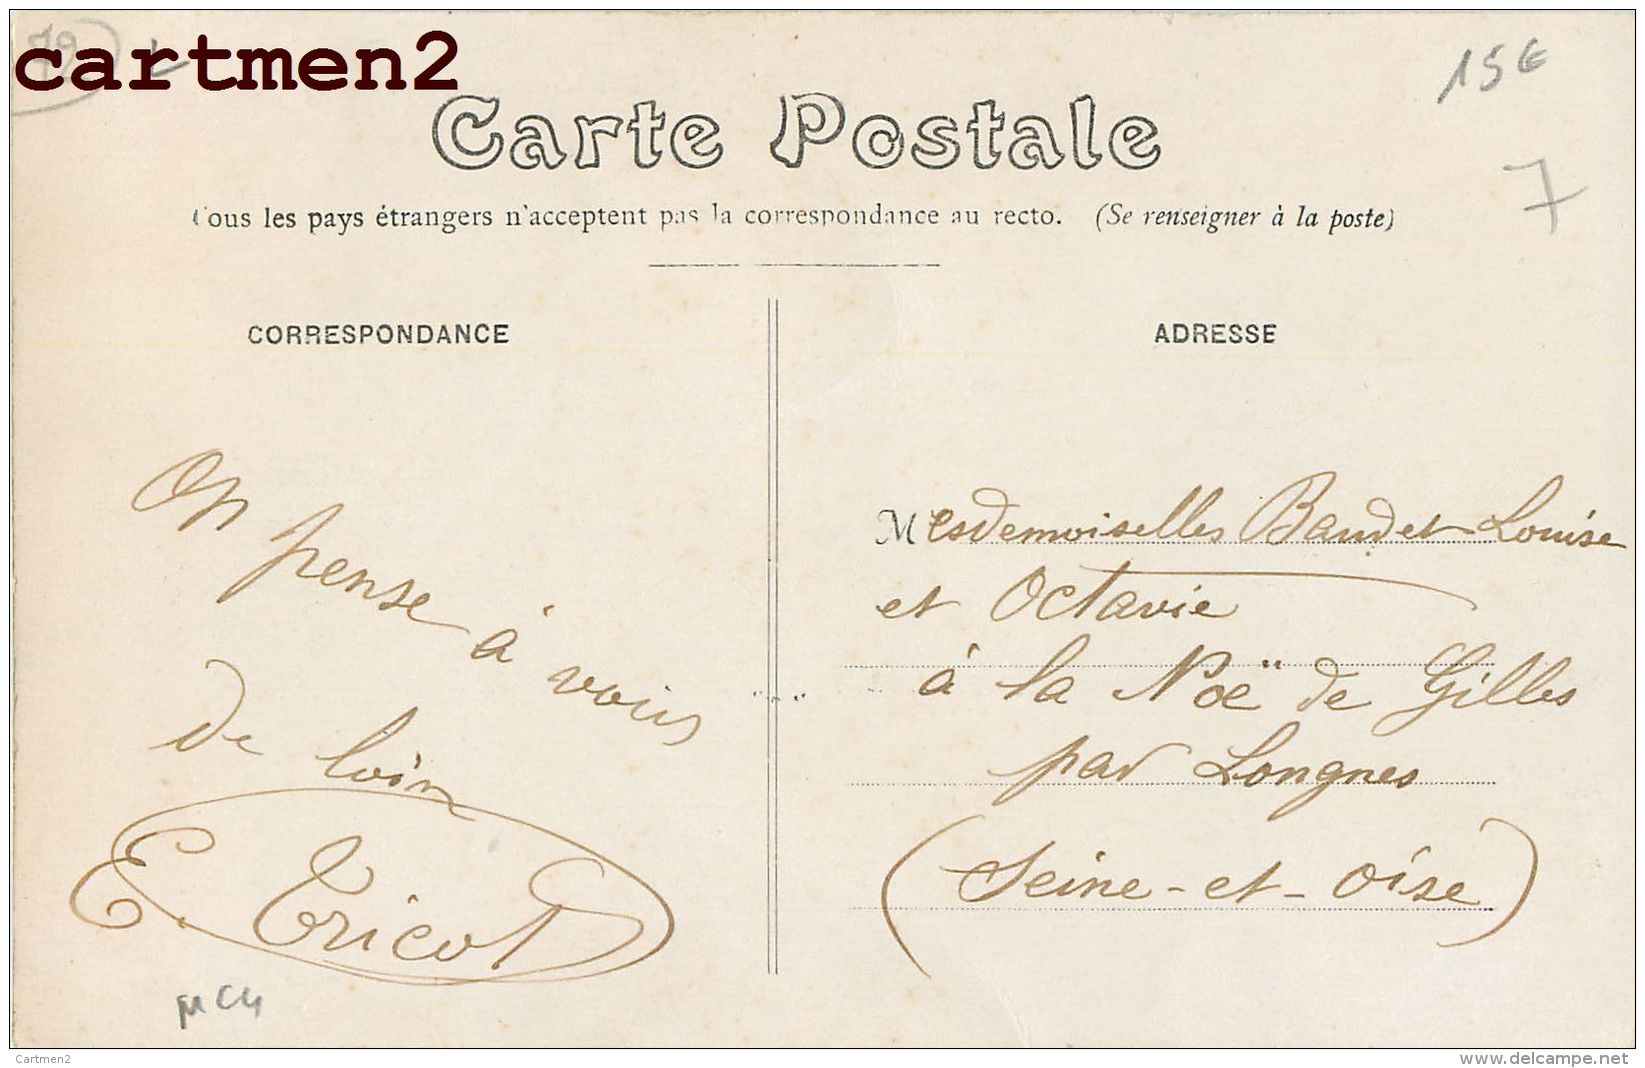 cartmen2
15€
7
Carte Postale
Tous les pays étrangers n'acceptent pas la correspondance au recto. (Se renseigner à la poste)
CORRESPONDANCE
On pense à vous
de loin
E. Tricot
ADRESSE
Mesdemoiselles Baudet Louise
et Octavie
à la Noë de Gilles
par Longnes
(Seine-et-Oise)
Cartmen2
www.delcampe.net